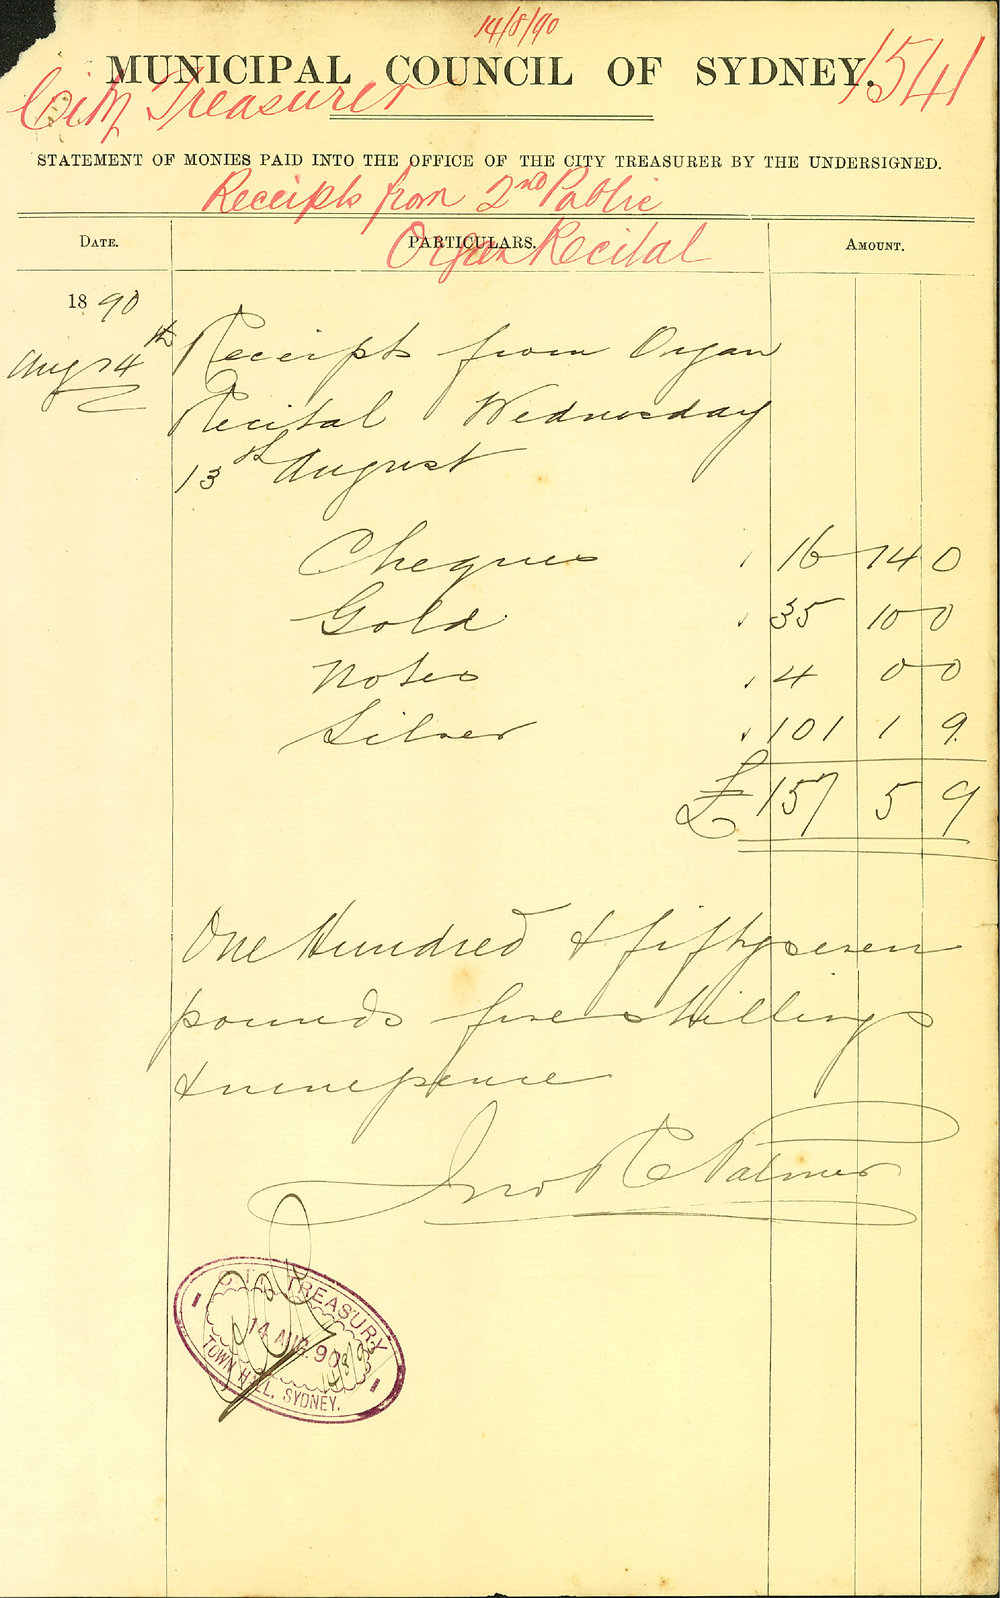 14/8/90
MUNICIPAL COUNCIL OF SYDNEY.
1541
City Treasurer
STATEMENT OF MONIES PAID INTO THE OFFICE OF THE CITY TREASURER BY THE UNDERSIGNED.
Receipts from 2nd Public
Organ Recital
DATE. PARTICULARS. AMOUNT.
1890
Aug 14th Receipts from Organ
Recital Wednesday
13th August
Cheques 16 14 0
Gold 35 10 0
Notes 4 0 0
Silver 101 1 9
£ 157 5 9
One Hundred & fifty seven
pounds five shillings
& ninepence
Jno R Palmer
CITY TREASURY
14 AUG. 90
14/8/90
TOWN HALL, SYDNEY.